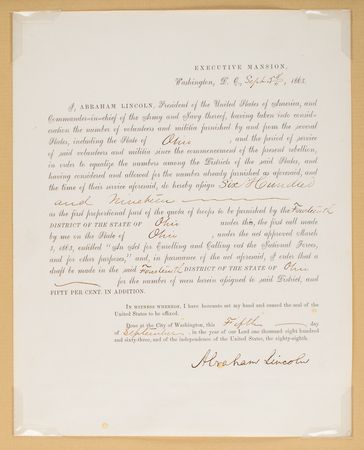 EXECUTIVE MANSION,
Washington, D. C., Sept 5th, 1863.
I, ABRAHAM LINCOLN, President of the United States of America, and
Commander-in-chief of the Army and Navy thereof, having taken into consid-
eration the number of volunteers and militia furnished by and from the several
States, including the State of Ohio, and the period of service
of said volunteers and militia since the commencement of the present rebellion,
in order to equalize the numbers among the Districts of the said States, and
having considered and allowed for the number already furnished as aforesaid, and
the time of their service aforesaid, do hereby assign Six Hundred
and Nineteen
as the first proportional part of the quota of troops to be furnished by the Fourteenth
DISTRICT OF THE STATE OF Ohio under this, the first call made
by me on the State of Ohio, under the act approved March
3, 1863, entitled "An Act for Enrolling and Calling out the National Forces,
and for other purposes," and, in pursuance of the act aforesaid, I order that a
draft be made in the said Fourteenth DISTRICT OF THE STATE OF Ohio
for the number of men herein assigned to said District, and
FIFTY PER CENT. IN ADDITION.
IN WITNESS WHEREOF, I have hereunto set my hand and caused the seal of the
United States to be affixed.
Done at the City of Washington, this Fifth day
of September, in the year of our Lord one thousand eight hundred
and sixty-three, and of the independence of the United States, the eighty-eighth.
Abraham Lincoln